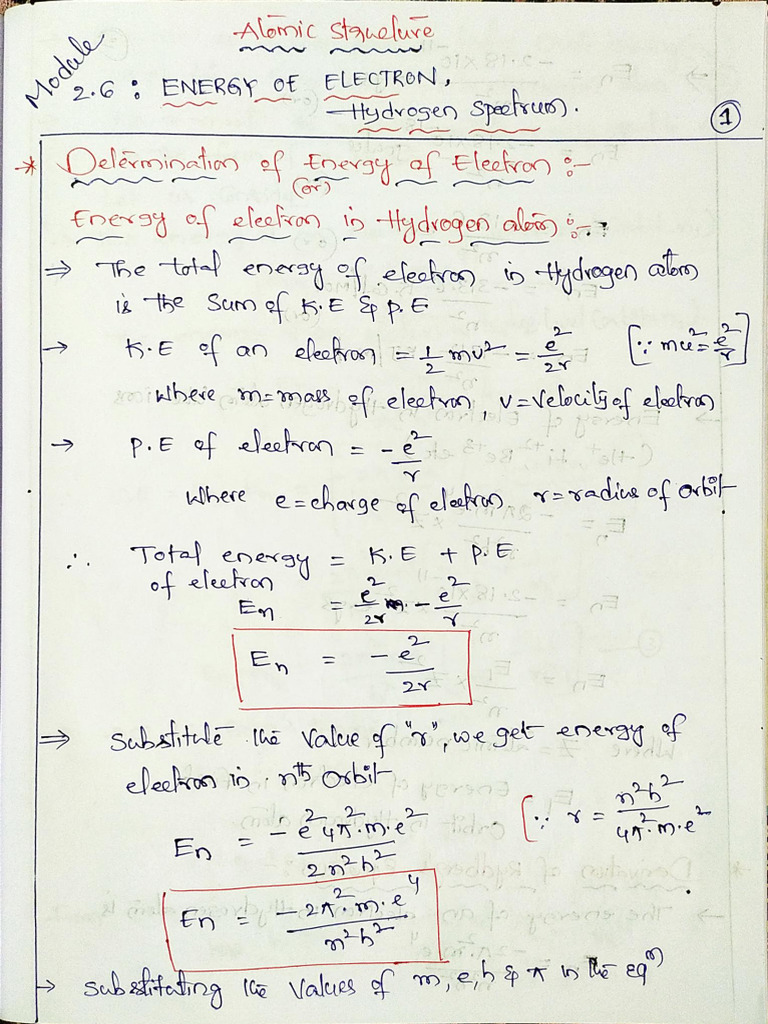 Atomic Structure
Module
2.6 : ENERGY OF ELECTRON,
Hydrogen Spectrum.
①
* Determination of Energy of Electron :-
(or)
Energy of electron in Hydrogen atom :-
⇒ The total energy of electron in Hydrogen atom
is the Sum of K.E & P.E
→ K.E of an electron = 1/2 mv² = e²/2r [∵ mv² = e²/r]
Where m=mass of electron, v=velocity of electron
→ P.E of electron = -e²/r
Where e=charge of electron, r=radius of orbit
∴ Total energy = K.E + P.E
of electron
En = e²/2r - e²/r
En = -e²/2r
⇒ Substitute the value of "r", we get energy of
electron in nth orbit
En = -e² 4π².m.e²/2n²h² [∵ r = n²h²/4π².m.e²
En = -2π².m.e⁴/n²h²
→ Substituting the values of m, e, h & π in the eqn